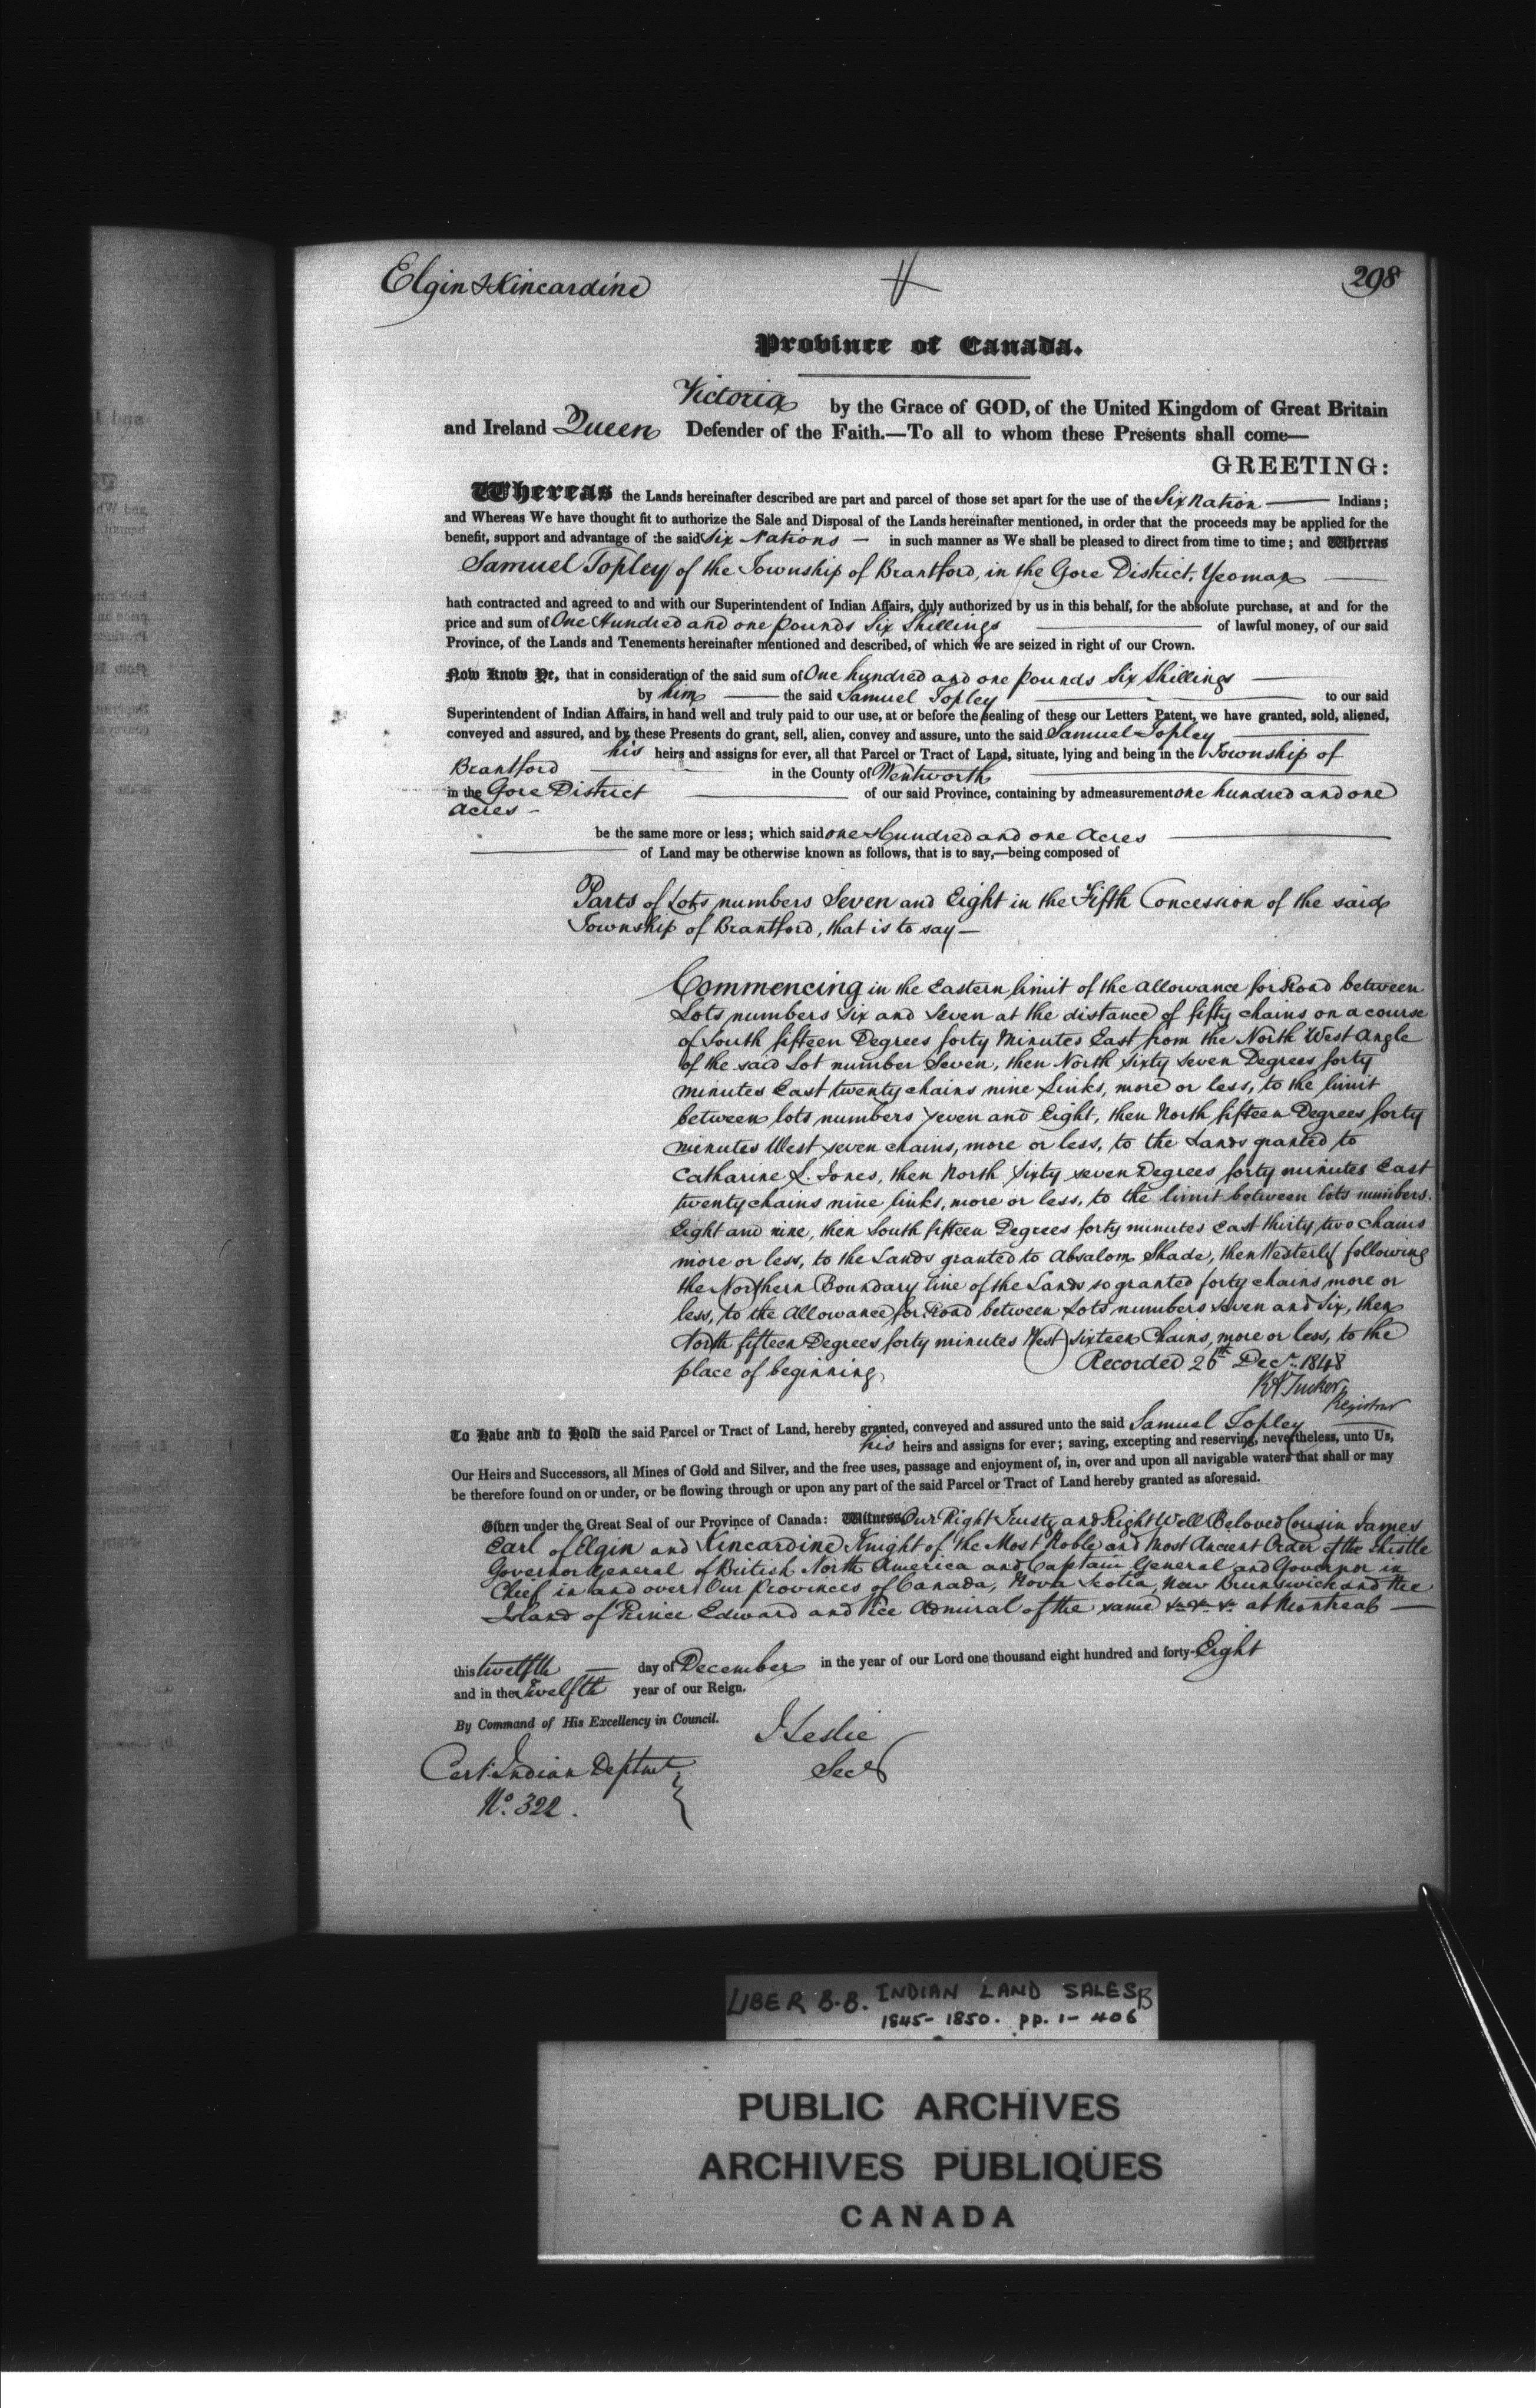 Elgin & Kincardine
298
Province of Canada.
Victoria by the Grace of GOD, of the United Kingdom of Great Britain
and Ireland Queen Defender of the Faith.—To all to whom these Presents shall come—
GREETING:
Whereas the Lands hereinafter described are part and parcel of those set apart for the use of the Six Nation — Indians;
and Whereas We have thought fit to authorize the Sale and Disposal of the Lands hereinafter mentioned, in order that the proceeds may be applied for the
benefit, support and advantage of the said Six Nations — in such manner as We shall be pleased to direct from time to time; and Whereas
Samuel Topley of the Township of Brantford, in the Gore District, Yeoman —
hath contracted and agreed to and with our Superintendent of Indian Affairs, duly authorized by us in this behalf, for the absolute purchase, at and for the
price and sum of One Hundred and one pounds Six Shillings — of lawful money, of our said
Province, of the Lands and Tenements hereinafter mentioned and described, of which we are seized in right of our Crown.
Now Know Ye, that in consideration of the said sum of One hundred and one pounds Six Shillings —
by him — the said Samuel Topley — to our said
Superintendent of Indian Affairs, in hand well and truly paid to our use, at or before the sealing of these our Letters Patent, we have granted, sold, aliened,
conveyed and assured, and by these Presents do grant, sell, alien, convey and assure, unto the said Samuel Topley —
his heirs and assigns for ever, all that Parcel or Tract of Land, situate, lying and being in the Township of
Brantford — in the County of Wentworth —
in the Gore District — of our said Province, containing by admeasurement one hundred and one
Acres —
be the same more or less; which said one Hundred and one Acres —
— of Land may be otherwise known as follows, that is to say,—being composed of
Parts of Lots numbers Seven and Eight in the Fifth Concession of the said
Township of Brantford, that is to say —
Commencing in the Eastern limit of the allowance for Road between
Lots numbers Six and Seven at the distance of fifty chains on a course
of South fifteen Degrees forty Minutes East from the North West Angle
of the said Lot number Seven, then North Sixty Seven Degrees forty
minutes East twenty chains nine links, more or less, to the limit
between lots numbers Seven and Eight, then North fifteen Degrees forty
minutes West seven chains, more or less, to the Lands granted to
Catharine L. Jones, then North Sixty seven Degrees forty minutes East
twenty chains nine links, more or less, to the limit between lots numbers
Eight and nine, then South fifteen Degrees forty minutes East thirty two chains
more or less, to the Lands granted to Absalom Shade, then Westerly following
the Northern Boundary line of the Lands so granted forty chains more or
less, to the Allowance for Road between Lots numbers seven and Six, then
North fifteen Degrees forty minutes West sixteen Chains, more or less, to the
place of beginning,
Recorded 26th Decr. 1848
RA Tucker
Registrar
To Have and to Hold the said Parcel or Tract of Land, hereby granted, conveyed and assured unto the said Samuel Topley —
his heirs and assigns for ever; saving, excepting and reserving, nevertheless, unto Us,
Our Heirs and Successors, all Mines of Gold and Silver, and the free uses, passage and enjoyment of, in, over and upon all navigable waters that shall or may
be therefore found on or under, or be flowing through or upon any part of the said Parcel or Tract of Land hereby granted as aforesaid.
Given under the Great Seal of our Province of Canada: Witness Our Right Trusty and Right Well Beloved Cousin James
Earl of Elgin and Kincardine Knight of the Most Noble and Most Ancient Order of the Thistle
Governor General of British North America and Captain General and Governor in
Chief in and over Our Provinces of Canada, Nova Scotia, New Brunswick and the
Island of Prince Edward and Vice Admiral of the same &c. &c. &c. at Montreal —
this twelfth — day of December in the year of our Lord one thousand eight hundred and forty-Eight
and in the Twelfth year of our Reign.
By Command of His Excellency in Council.
J Leslie
Secy
Cert. Indian Deptmt
No. 322.
LIBER B.B. INDIAN LAND SALES B
1845-1850. pp. 1-406
PUBLIC ARCHIVES
ARCHIVES PUBLIQUES
CANADA